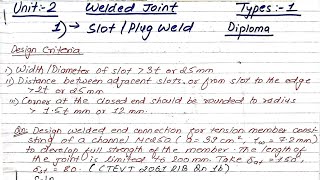 Unit:-2 Welded Joint Types:-1
1)→ Slot / Plug Weld Diploma
Design Criteria
i) Width/Diameter of slot > 3t or 25mm
ii) Distance between adjacent slots or from slot to the edge
> 2t or 25mm
iii) Corner at the closed end should be rounded to radius
> 1.5t mm or 12 mm.
Design welded end connection for tension member consi-
sting of a channel (a = 39 cm², tw = 7.2mm)
to develop full strength of the member. The length of
the joint is limited to 200mm. Take σat = 150,
= 80. (CTEVT 2061 21B